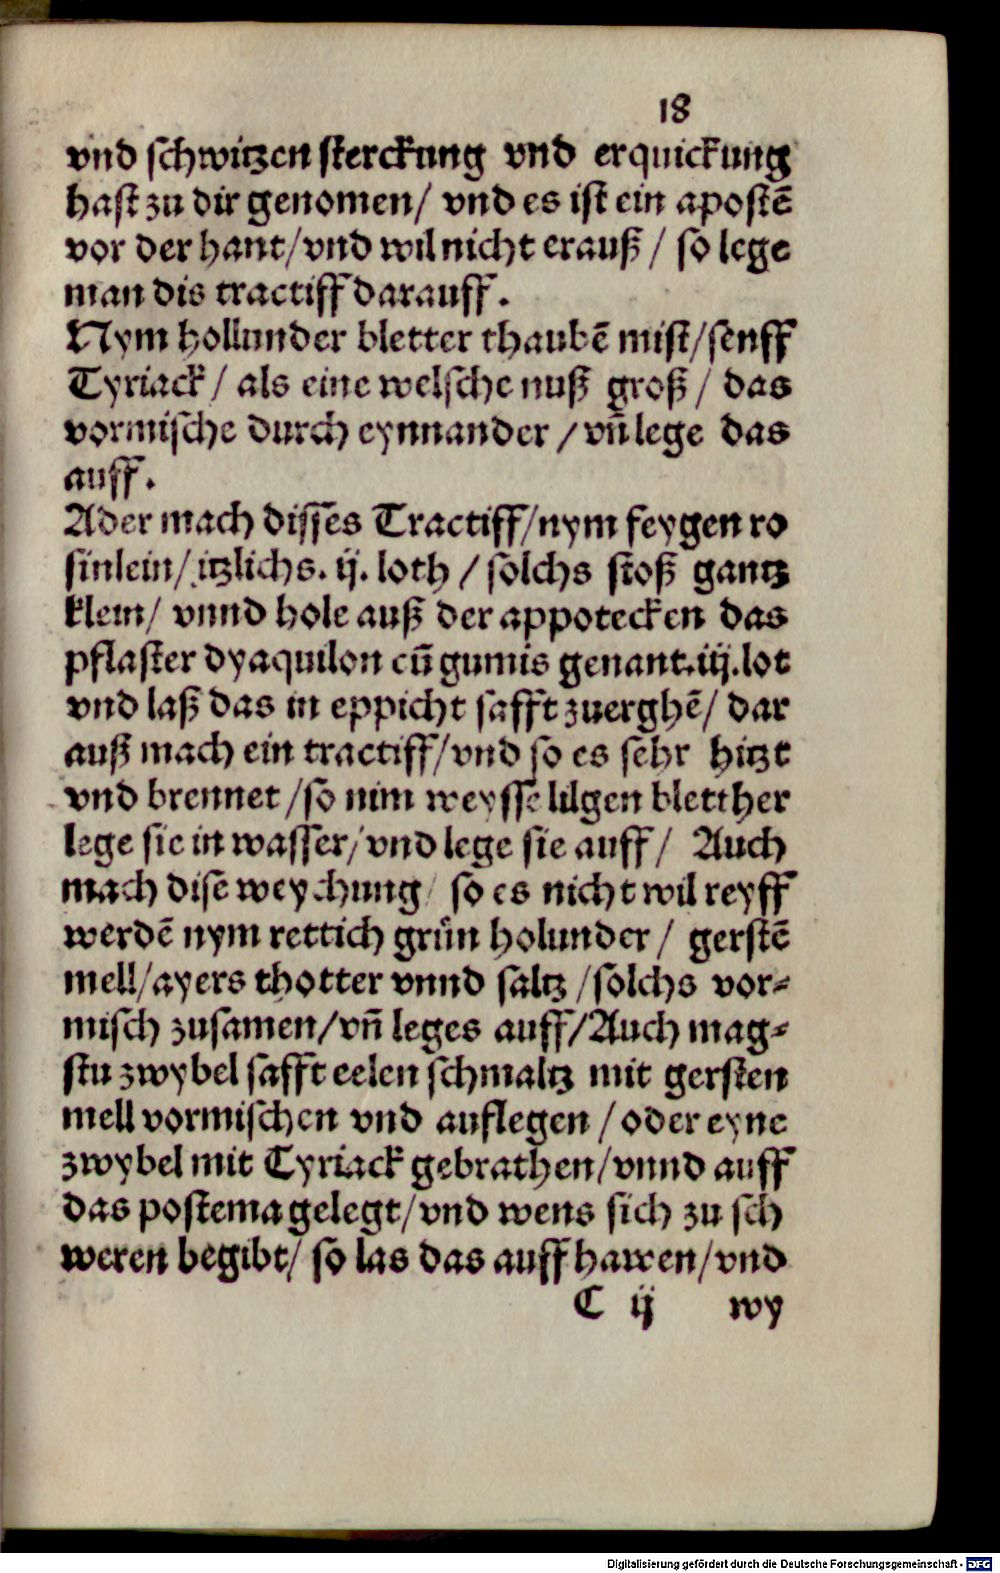 18
vnd schwitzen sterckung vnd erquickung
hast zu dir genomen/ vnd es ist ein apostē
vor der hant/vnd wil nicht erauß / so lege
man dis tractiff darauff.
Nym hollunder bletter thaubē mist/senff
Tyriack / als eine welsche nuß groß / das
vormische durch eynnander /vn̄ lege das
auff.
Ader mach disses Tractiff/nym feygen ro
sinlein/ itzlichs. ij. loth / solchs stoß gantz
klein/ vnnd hole auß der appotecken das
pflaster dyaquilon cū gumis genant.iij.lot
vnd laß das in eppicht safft zuerghē/ dar
auß mach ein tractiff/vnd so es sehr hitzt
vnd brennet /so nim weysse lilgen bletther
lege sie in wasser/vnd lege sie auff/ Auch
mach dise weychung/ so es nicht wil reyff
werdē nym rettich grün holunder / gerstē
mell/ayers thotter vnnd saltz /solchs vor⸗
misch zusamen/vn̄ leges auff/Auch mag⸗
stu zwybel safft eelen schmaltz mit gersten
mell vormischen vnd auflegen /oder eyne
zwybel mit Tyriack gebrathen/vnnd auff
das postema gelegt/vnd wens sich zu sch
weren begibt/ so las das auff hawen/vnd
C ij wy
Digitalisierung gefördert durch die Deutsche Forschungsgemeinschaft - DFG